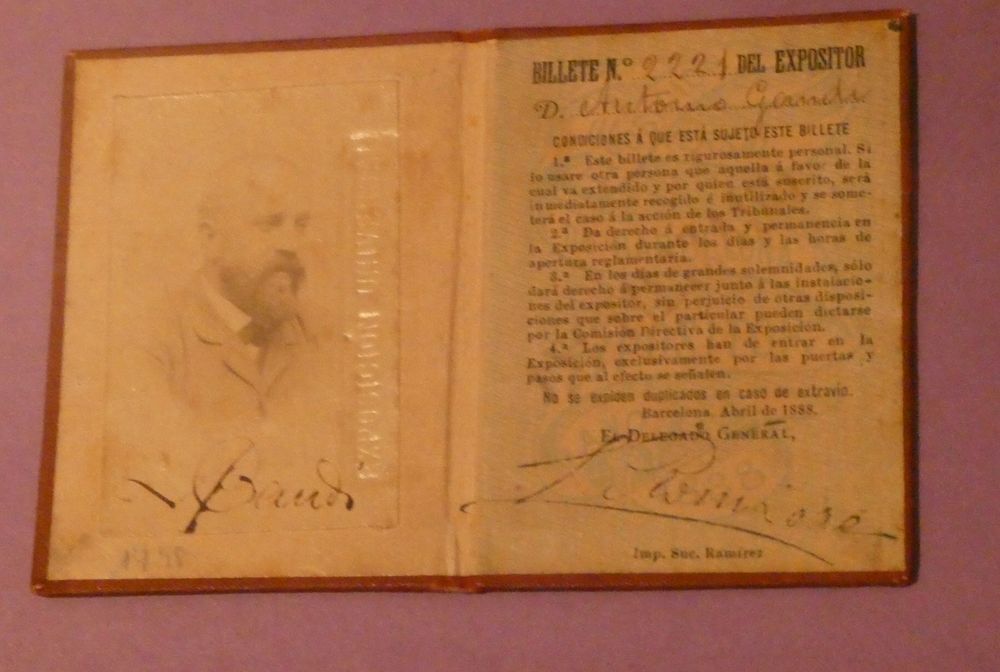 EXPOSICIÓN UNIVERSAL
Gaudí
BILLETE N.º 2221 DEL EXPOSITOR
D. Antonio Gaudi
CONDICIONES Á QUE ESTÁ SUJETO ESTE BILLETE
1.ª Este billete es rigurosamente personal. Si
lo usare otra persona que aquella á favor de la
cual va extendido y por quien está suscrito, será
inmediatamente recogido é inutilizado y se some-
terá el caso á la acción de los Tribunales.
2.ª Da derecho á entrada y permanencia en
la Exposición durante los días y las horas de
apertura reglamentaria.
3.ª En los días de grandes solemnidades, sólo
dará derecho á permanecer junto á las instalacio-
nes del expositor, sin perjuicio de otras disposi-
ciones que sobre el particular pueden dictarse
por la Comisión Directiva de la Exposición.
4.ª Los expositores han de entrar en la
Exposición, exclusivamente por las puertas y
pasos que al efecto se señalen.
No se expiden duplicados en caso de extravío.
Barcelona, Abril de 1888.
EL DELEGADO GENERAL,
Imp. Suc. Ramírez